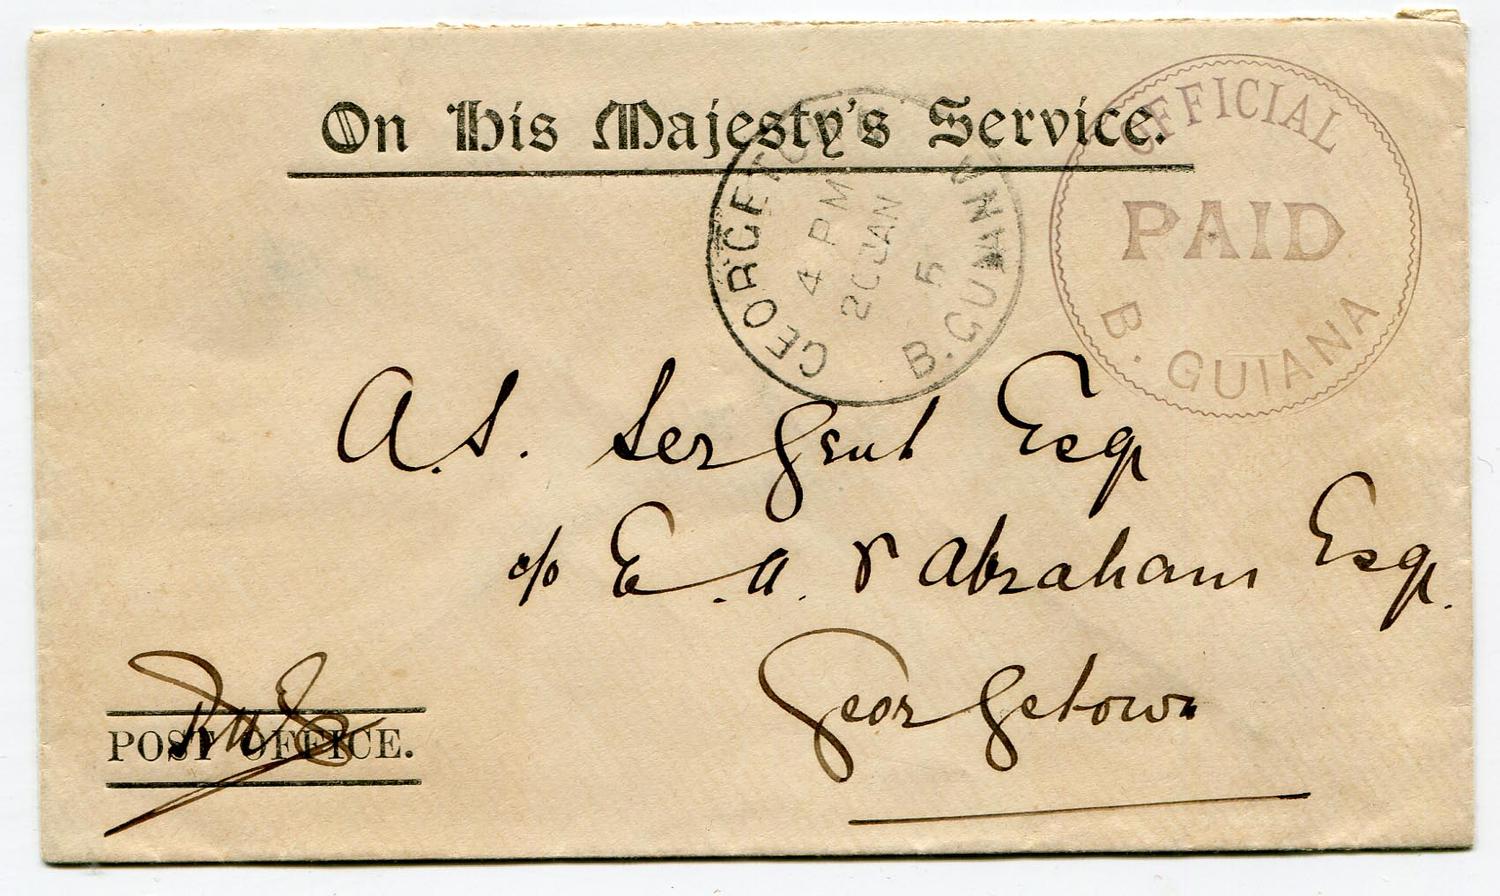 On His Majesty's Service.
OFFICIAL
PAID
B. GUIANA
GEORGETOWN
4 PM
20 JAN
5
B. GUIANA
A. S. Esq
c/o E. A. V Abraham Esq.
Georgetown
POST OFFICE.